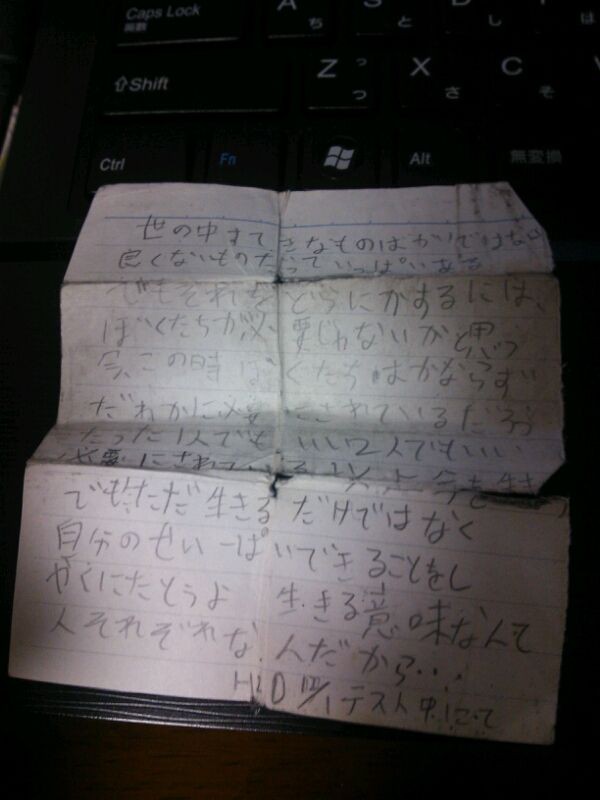 Caps Lock
英数
A
ち
S
と
し
は
⇧Shift
Z
っ
つ
X
さ
C
そ
Ctrl
Fn
Alt
無変換
世の中すてきなものばかりではない
良くないものだっていっぱいある
でもそれをどうにかするには、
ぼくたちが必要じゃないかと思う
今、この時ぼくたちはかならず
だれかに必要にされているだろう
たった1人でもいい2人でもいい
必要にされている 今を生き
でもただ生きるだけではなく
自分のせいいっぱいできることをし
やくにたとうよ 生きる意味なんて
人それぞれなんだから…
テスト中にて